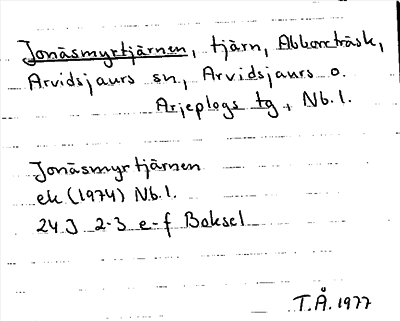 Jonäsmyrtjärnen, tjärn, Abborrträsk,
Arvidsjaurs sn, Arvidsjaurs o.
Arjeplogs tg, Nb.l.
Jonäsmyrtjärnen
ek (1974) Nb.l.
24J 2-3 e-f Boksel
T.Å. 1977